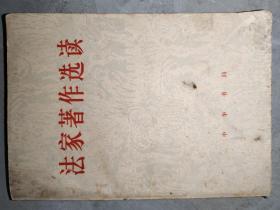 法家著作选读
中华书局